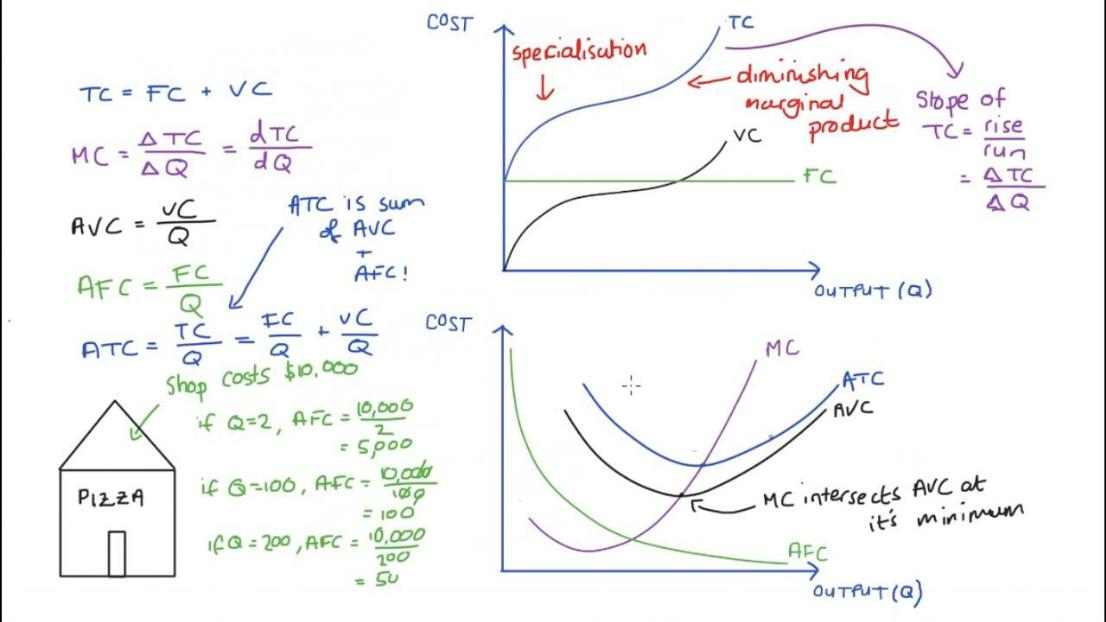 TC = FC + VC
MC = ΔTC/ΔQ = dTC/dQ
AVC = VC/Q
AFC = FC/Q
ATC is sum
of AVC
+
AFC!
ATC = TC/Q = FC/Q + VC/Q
Shop costs $10,000
if Q=2, AFC = 10,000/2
= 5,000
if Q=100, AFC = 10,000/100
= 100
if Q=200, AFC = 10,000/200
= 50
PIZZA
COST
specialisation
TC
diminishing
marginal
product
VC
FC
OUTPUT (Q)
Slope of
TC = rise/run
= ΔTC/ΔQ
COST
MC
ATC
AVC
MC intersects AVC at
it's minimum
AFC
OUTPUT (Q)